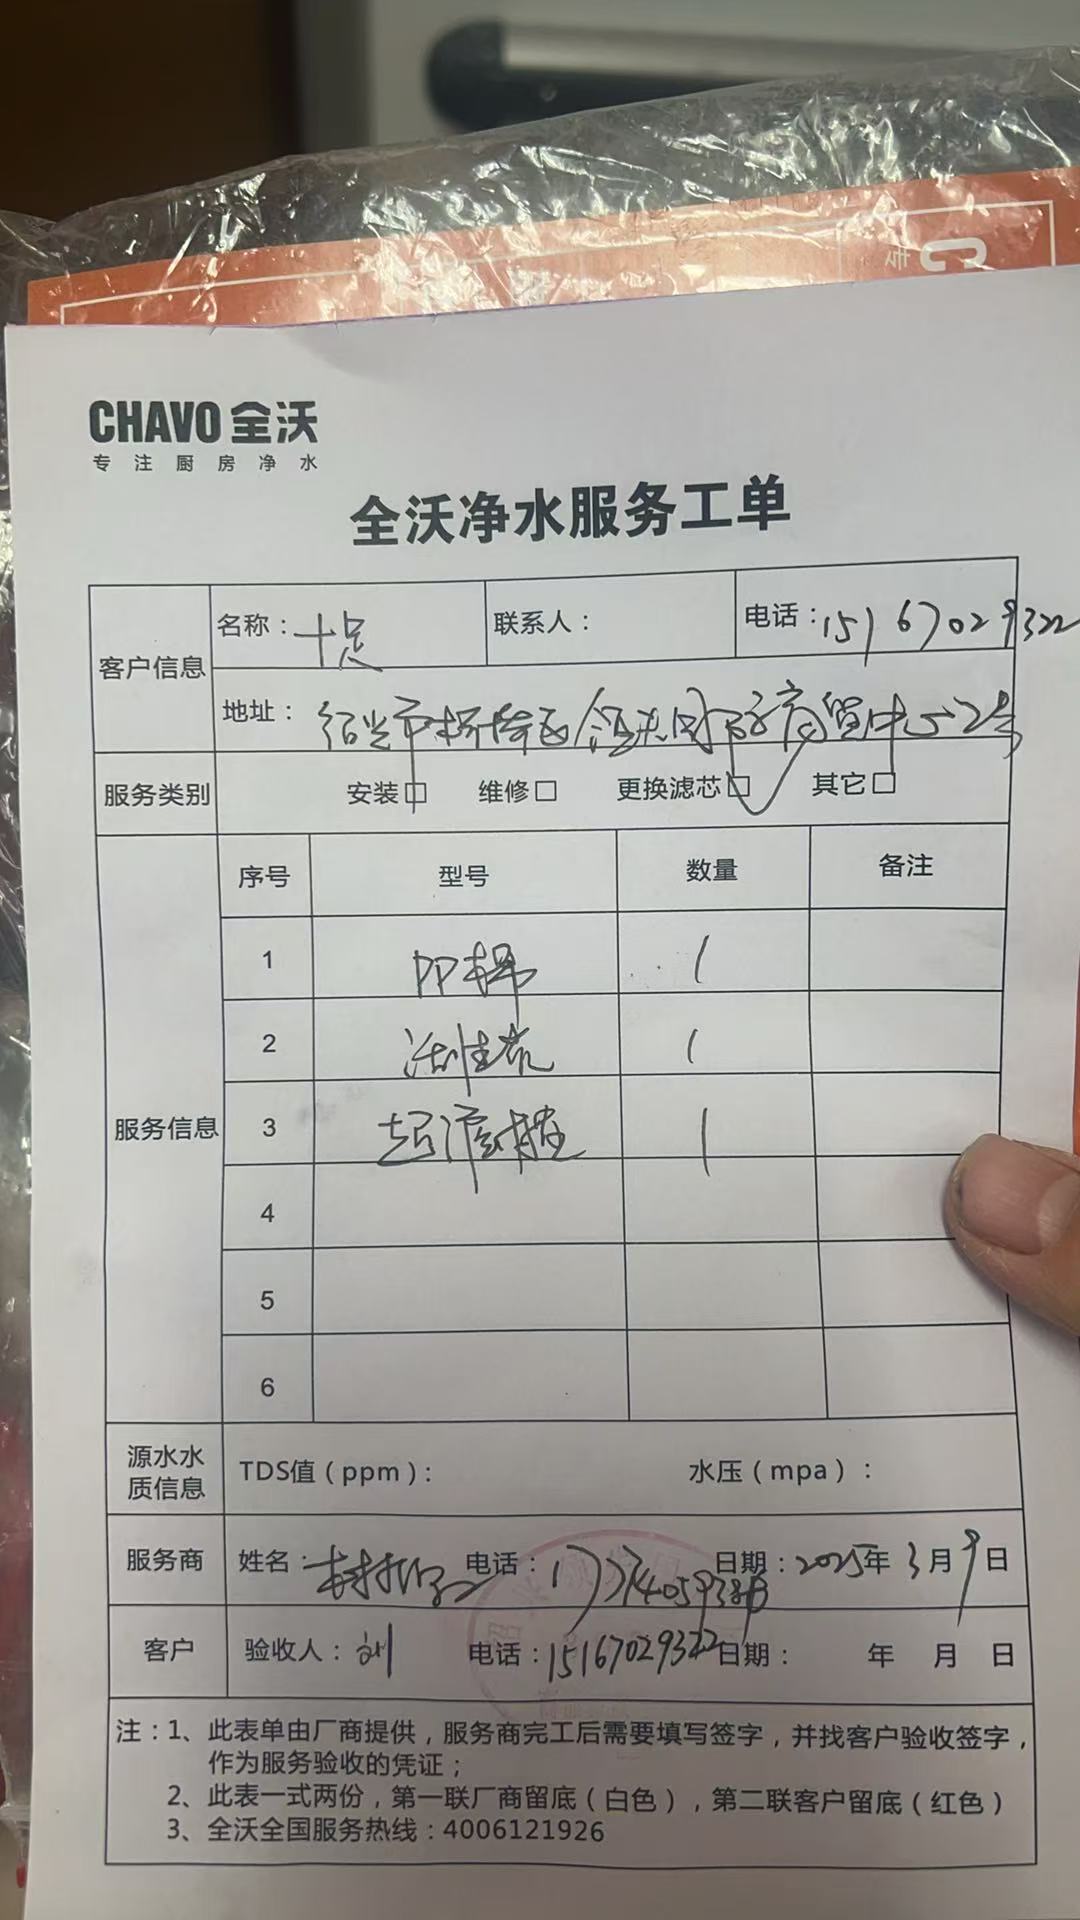 CHAVO 全沃
专注厨房净水
全沃净水服务工单
客户信息
名称：十点
联系人：
电话：15167029322
地址：绍兴市柯桥区 商贸中心52号
服务类别
安装 维修 更换滤芯 其它
服务信息
序号 型号 数量 备注
1 PP棉 1
2 活性炭 1
3 超滤 1
4
5
6
源水水质信息
TDS值（ppm）：
水压（mpa）：
服务商
姓名：
电话：
日期：2025年3月9日
客户
验收人：刘
电话：15167029322
日期： 年 月 日
注：1、此表单由厂商提供，服务商完工后需要填写签字，并找客户验收签字，
作为服务验收的凭证；
2、此表一式两份，第一联厂商留底（白色），第二联客户留底（红色）
3、全沃全国服务热线：4006121926